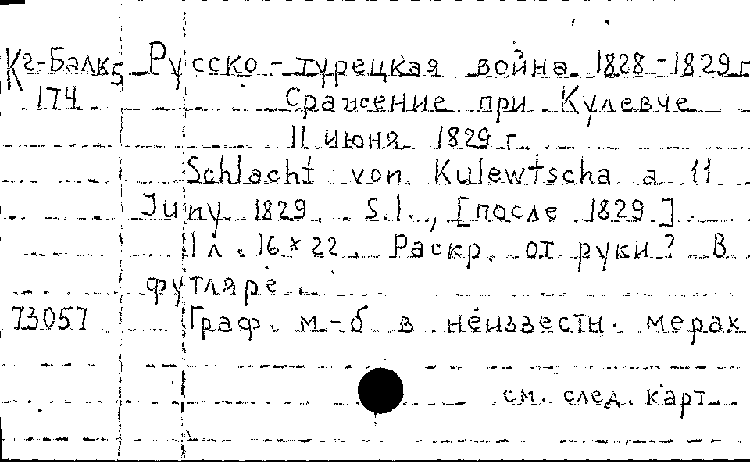 Кг-Балк 5 Русско-турецкая война 1828-1829 г
174 Сражение при Кулевче
11 июня 1829 г.
Schlacht von Kulewtscha a 11
Juny 1829. S.l., [после 1829.]
1 л. 16×22. Раскр. от руки? В
футляре.
73057 Граф. м-б в неизвестн. мерах
см. след. карт.